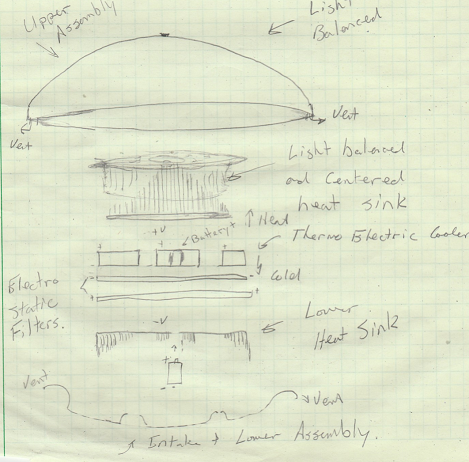 Upper
Assembly
Light
Balanced
Vent
Vent
Light balanced
and Centered
heat sink
↑ Heat
+V
Battery +
Thermo Electric Cooler
Cold
Electro
Static
Filters.
-V
Lower
Heat Sink
Vent
Vent
Intake + Lower Assembly.